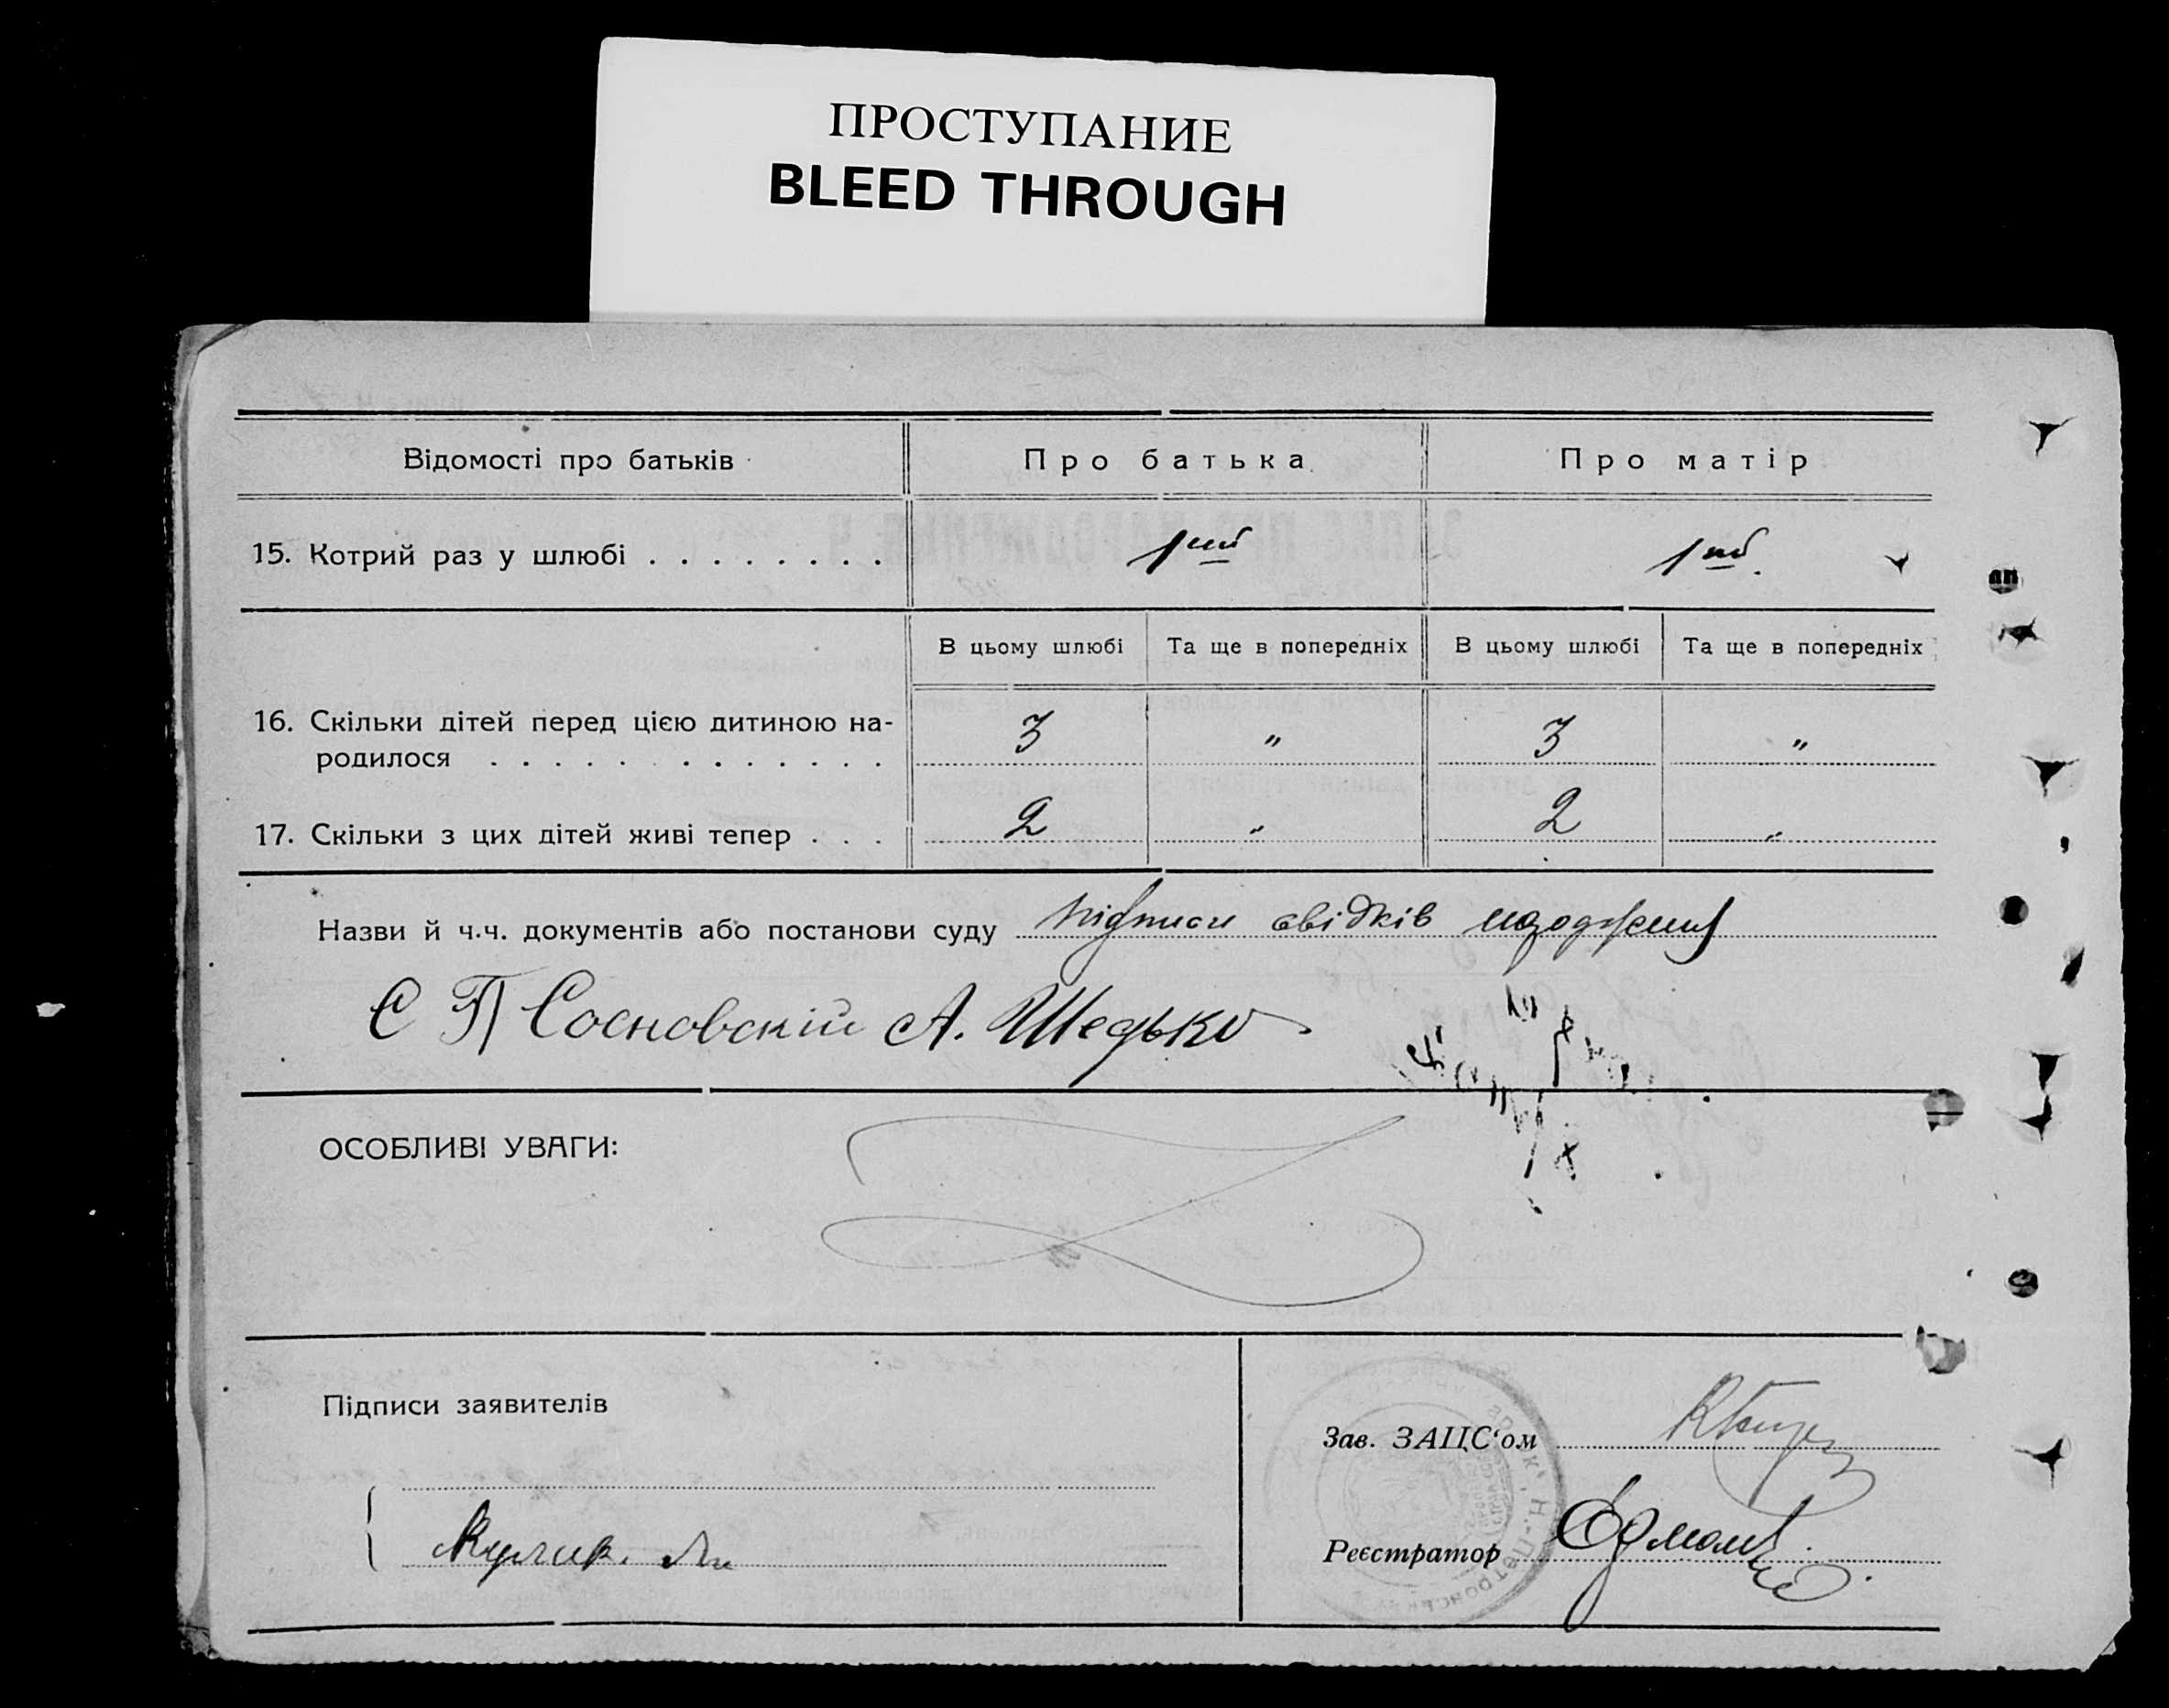 ПРОСТУПАНИЕ
BLEED THROUGH
Відомості про батьків
Про батька
Про матір
15. Котрий раз у шлюбі . . . . . . . .
1ий
1ий.
В цьому шлюбі
Та ще в попередніх
В цьому шлюбі
Та ще в попередніх
16. Скільки дітей перед цією дитиною на-
родилося . . . . . . . . . . . . .
3
"
3
"
17. Скільки з цих дітей живі тепер . . .
2
"
2
"
Назви й ч.ч. документів або постанови суду підписи свідків
Є П Сосновскій А. Шедько
ОСОБЛИВІ УВАГИ:
Підписи заявителів
Зав. ЗАЦС‘ом
Реєстратор